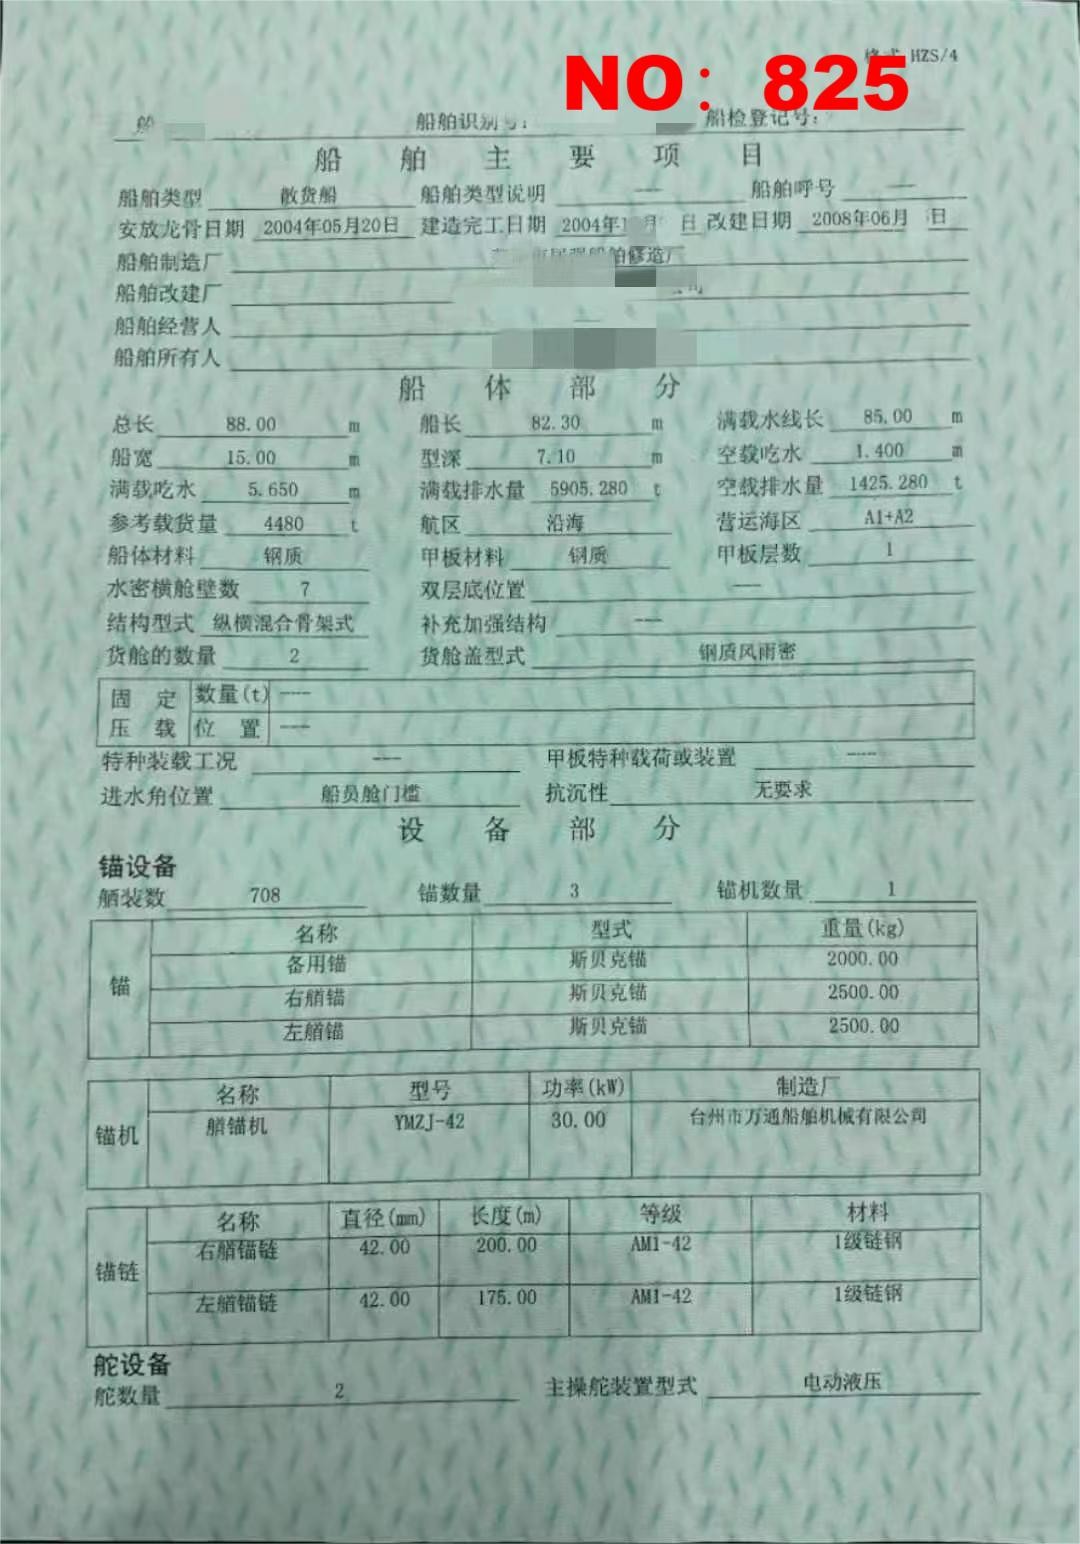 NO：825
HZS/4
船 船舶识别号: 船检登记号:
船舶主要项目
船舶类型 散货船 船舶类型说明 --- 船舶呼号 ---
安放龙骨日期 2004年05月20日 建造完工日期 2004年 月 日 改建日期 2008年06月 日
船舶制造厂 船舶修造厂
船舶改建厂 公司
船舶经营人
船舶所有人
船体部分
总长 88.00 m 船长 82.30 m 满载水线长 85.00 m
船宽 15.00 m 型深 7.10 m 空载吃水 1.400 m
满载吃水 5.650 m 满载排水量 5905.280 t 空载排水量 1425.280 t
参考载货量 4480 t 航区 沿海 营运海区 A1+A2
船体材料 钢质 甲板材料 钢质 甲板层数 1
水密横舱壁数 7 双层底位置 ---
结构型式 纵横混合骨架式 补充加强结构 ---
货舱的数量 2 货舱盖型式 钢质风雨密
固定 数量(t) ---
压载 位置 ---
特种装载工况 --- 甲板特种载荷或装置 ---
进水角位置 船员舱门槛 抗沉性 无要求
设备部分
锚设备
舾装数 708 锚数量 3 锚机数量 1
锚 名称 型式 重量(kg)
备用锚 斯贝克锚 2000.00
右艏锚 斯贝克锚 2500.00
左艏锚 斯贝克锚 2500.00
锚机 名称 型号 功率(kW) 制造厂
艏锚机 YMZJ-42 30.00 台州市万通船舶机械有限公司
锚链 名称 直径(mm) 长度(m) 等级 材料
右艏锚链 42.00 200.00 AM1-42 1级链钢
左艏锚链 42.00 175.00 AM1-42 1级链钢
舵设备
舵数量 2 主操舵装置型式 电动液压